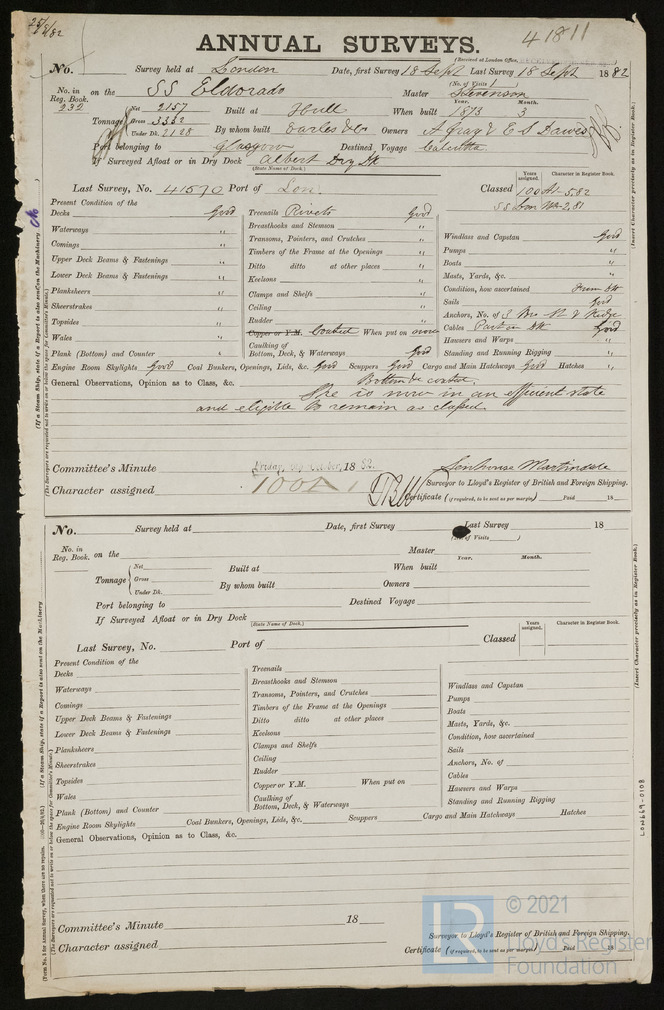 41811
ANNUAL SURVEYS.
(Received at London Office,
No. Survey held at London Date, first Survey 18 Sept Last Survey 18 Sept 1882
(No. of Visits 1)
No. in Reg. Book. 232 on the SS Eldorado Master Stevenson
Year. Month.
Tonnage Net 2157 Built at Hull When built 1873 3
Gross 3332
Under Dk. 2128 By whom built Earles & Co Owners A Gray & E S Dawes
Port belonging to Glasgow Destined Voyage Calcutta
If Surveyed Afloat or in Dry Dock Albert Dry Dk
(State Name of Dock.)
Last Survey, No. 41570 Port of Lon. Classed 100A1-5.82
Years assigned. Character in Register Book.
Present Condition of the
Decks Good
Waterways "
Comings "
Upper Deck Beams & Fastenings "
Lower Deck Beams & Fastenings "
Planksheers "
Sheerstrakes "
Topsides "
Wales "
Plank (Bottom) and Counter "
Treenails Rivets Good
Breasthooks and Stemson "
Transoms, Pointers, and Crutches "
Timbers of the Frame at the Openings "
Ditto ditto at other places "
Keelsons "
Clamps and Shelfs "
Ceiling "
Rudder "
Copper or Y.M. Coated When put on now
Caulking of Bottom, Deck, & Waterways Good
Windlass and Capstan Good
Pumps "
Boats "
Masts, Yards, &c. "
Condition, how ascertained From Dk
Sails Good
Anchors, No. of
Cables Part on Dk Good
Hawsers and Warps "
Standing and Running Rigging "
Engine Room Skylights Good Coal Bunkers, Openings, Lids, &c. Good Scuppers Good Cargo and Main Hatchways Good Hatches "
General Observations, Opinion as to Class, &c.
Bottom re coated.
She is now in an efficient state
and eligible to remain as classed.
Committee's Minute Friday, October, 1882.
Character assigned 100A1
Senhouse Martindale
Surveyor to Lloyd's Register of British and Foreign Shipping.
Certificate (if required, to be sent as per margin) Paid 18
No. Survey held at Date, first Survey Last Survey 18
(No. of Visits )
No. in Reg. Book. on the Master
Year. Month.
Tonnage Net Built at When built
Gross
Under Dk. By whom built Owners
Port belonging to Destined Voyage
If Surveyed Afloat or in Dry Dock
(State Name of Dock.)
Last Survey, No. Port of Classed
Years assigned. Character in Register Book.
Present Condition of the
Decks
Waterways
Comings
Upper Deck Beams & Fastenings
Lower Deck Beams & Fastenings
Planksheers
Sheerstrakes
Topsides
Wales
Plank (Bottom) and Counter
Treenails
Breasthooks and Stemson
Transoms, Pointers, and Crutches
Timbers of the Frame at the Openings
Ditto ditto at other places
Keelsons
Clamps and Shelfs
Ceiling
Rudder
Copper or Y.M. When put on
Caulking of Bottom, Deck, & Waterways
Windlass and Capstan
Pumps
Boats
Masts, Yards, &c.
Condition, how ascertained
Sails
Anchors, No. of
Cables
Hawsers and Warps
Standing and Running Rigging
Engine Room Skylights Coal Bunkers, Openings, Lids, &c. Scuppers Cargo and Main Hatchways Hatches
General Observations, Opinion as to Class, &c.
Committee's Minute 18
Character assigned
Surveyor to Lloyd's Register of British and Foreign Shipping.
Certificate (if required, to be sent as per margin) Paid 18
(If a Steam Ship, state if a Report is also sent on the Machinery
(The Surveyors are requested not to write on or below the space for Committee's Minute.)
(Insert Character precisely as in Register Book.)
(If a Steam Ship, state if a Report is also sent on the Machinery
(The Surveyors are requested not to write on or below the space for Committee's Minute.)
(Insert Character precisely as in Register Book.)
LON669-0108
© 2021
LR
Lloyd's Register
Foundation